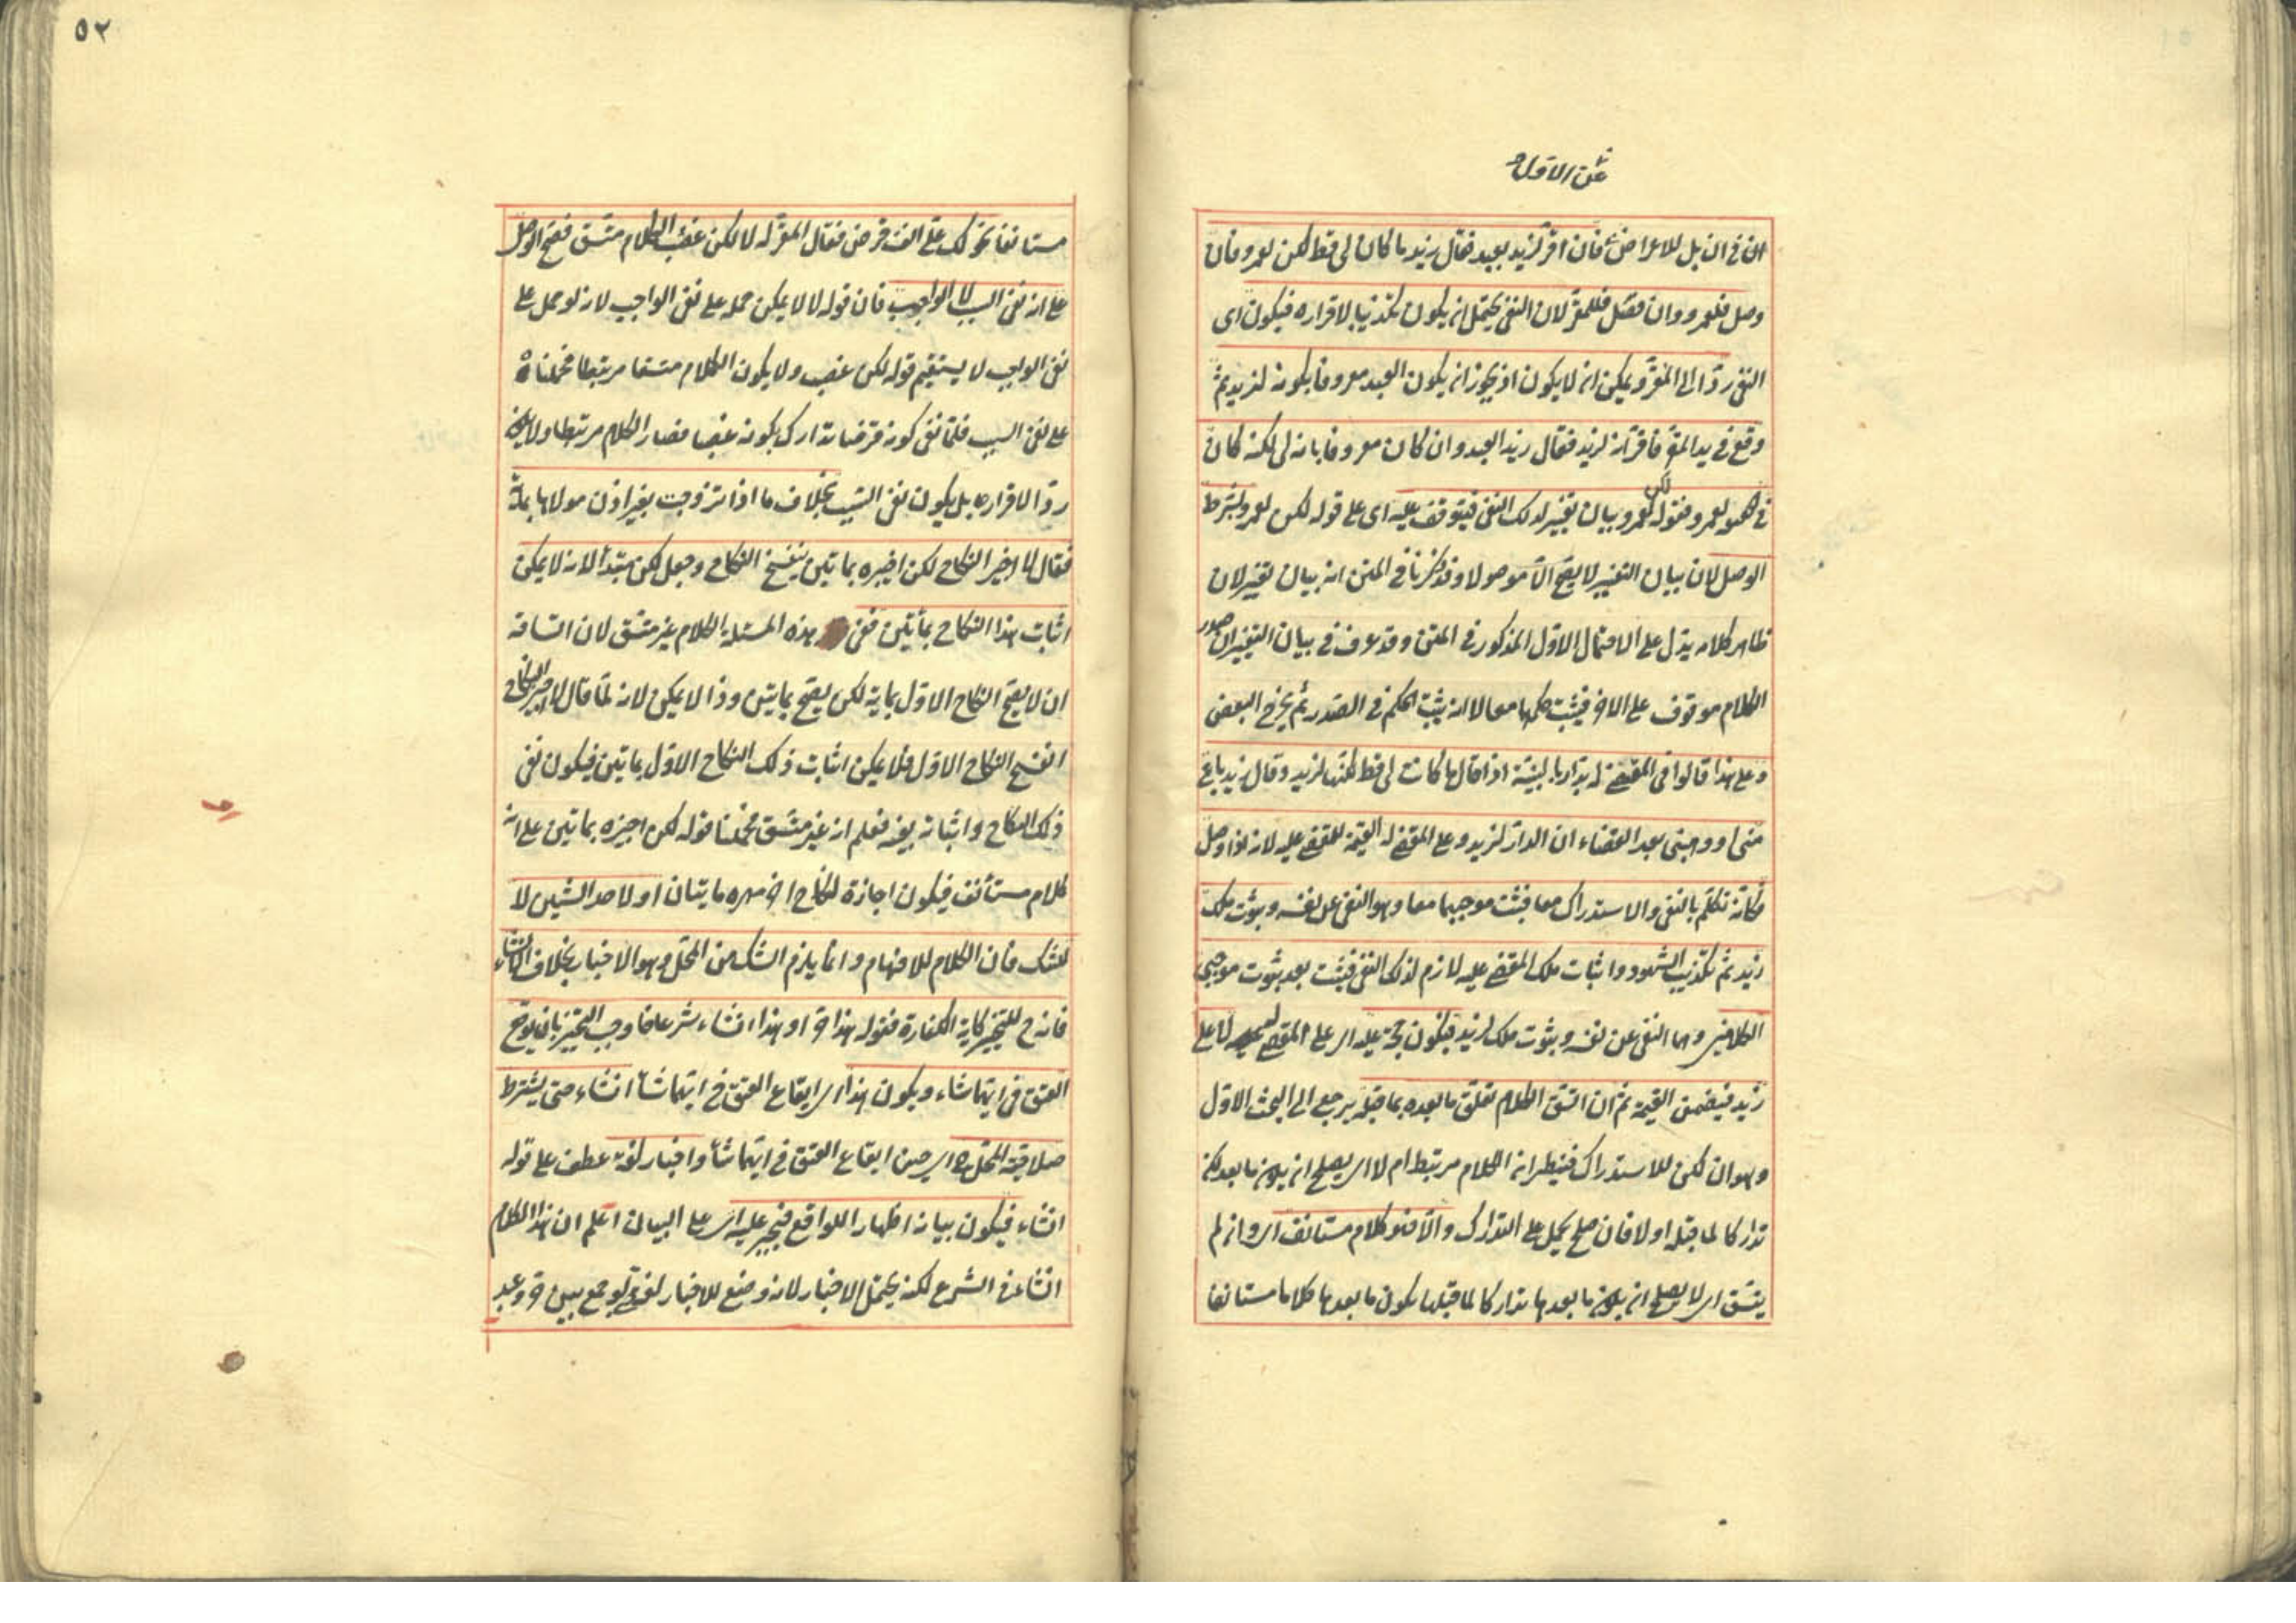 عن الاول
الا في ان بل للاعراض فان اقر لزيد بعبد فقال زيد ما كان لى قط لكن لعمرو فان
وصل فلعمرو وان فصل فللمقر لان النفى يحتمل ان يكون تكذيبا لاقراره فيكون اى
النفى ردا الى المقر ويمكن ان لا يكون اذ يجوز ان يكون العبد معروفا بكونه لزيد ثم
وقع فى يد المقر فاقر انه لزيد فقال زيد العبد وان كان معروفا بانه لى لكنه كان
فى لعمرو فقوله لكن لعمرو بيان تغيير لذلك النفى فيتوقف عليه اى على قوله لكن لعمرو بشرط
الوصل لان بيان التغيير لا يصح الا موصولا وقد ذكرنا فى المتن انه بيان تغيير لان
ظاهر كلامه يدل على الاحتمال الاول المذكور فى المتن وقد عرف فى بيان التغيير ان صدر
الكلام موقوف على الاخر فيثبت حكمهما معا لا انه يثبت الحكم فى الصدر ثم يخرج البعض
وعلى هذا قالوا فى المقضى له بدار بالبينة اذا قال ما كانت لى قط لكنها لزيد وقال زيد باع
منى او وهبنى بعد القضاء ان الدار لزيد وعلى المقضى له القيمة للمقضى عليه لانه اذا وصل
فكانه تكلم بالنفى والاستدراك معا فيثبت موجبهما معا وهو النفى عن نفسه وثبوت ملك
زيد ثم تكذيب الشهود واثبات ملك المقضى عليه لازم لذلك النفى فيثبت بعد ثبوت موجبى
الكلامين وهما النفى عن نفسه وثبوت ملك لزيد فيكون حجة عليه اى على المقضى له لا على
زيد فيضمن القيمة ثم ان اتسق الكلام تعلق ما بعده بما قبله يرجع الى البحث الاول
وهو ان لكن للاستدراك فينظر ان الكلام مرتبط ام لا اى يصلح ان يكون ما بعد لكن
تداركا لما قبله او لا فان صلح يحمل على التدارك والا فهو كلام مستانف اى وان لم
يتسق اى لا يصلح ان يكون ما بعدها تداركا لما قبلها يكون ما بعدها كلاما مستانفا
٥٢
مستانفا نحو لك على الف قرض فقال المقر له لا لكن غصب الكلام متسق فصح الوصل
على انه نفى السبب لا الواجب فان قوله لا لا يمكن حمله على نفى الواجب لانه لو حمل على
نفى الواجب لا يستقيم قوله لكن غصب ولا يكون الكلام متسقا مرتبطا فحملناه
على نفى السبب فلما نفى كونه قرضا تدارك بكونه غصبا فصار الكلام مرتبطا ولا يكون
ردا لاقراره بل يكون نفى السبب بخلاف ما اذا تزوجت بغير اذن مولاها بمائة
فقال لا اجيز النكاح لكن اجيزه بماتين ينفسخ النكاح وجعل لكن مبتدأ لانه لا يمكن
اثبات هذا النكاح بمأتين ففى هذه المسئلة الكلام غير متسق لان اتساقه
ان لا يصح النكاح الاول بماية لكن يصح بمايتين وذا لا يمكن لانه لما قال لا اجيز النكاح
انفسخ النكاح الاول فلا يمكن اثبات ذلك النكاح الاول بماتين فيكون نفى
ذلك النكاح واثباته بعينه فعلم انه غير متسق فحملنا قوله لكن اجيزه بماتين على انه
كلام مستأنف فيكون اجازة لنكاح اخر مهره مايتان او لاحد الشيئين لا
للشك فان الكلام للافهام وانما يلزم الشك من المحل وهو الاخبار بخلاف الانشاء
فانه ح للتخيير كاية الكفارة فقوله هذا حر او هذا انشاء شرعا فاوجب التخيير بان يوقع
العتق فى ايهما شاء ويكون هذا اى ايقاع العتق فى ايهما شأ انشاء حتى يشترط
صلاحية المحل ح اى حين ايقاع العتق فى ايهما شأ واخبار لغة عطف على قوله
انشاء فيكون بيانه اظهارا للواقع فيجبر عليه اى على البيان اعلم ان هذا الكلام
انشاء فى الشرع لكنه يحتمل الاخبار لانه وضع للاخبار لغة حتى لو جمع بين حر وعبد